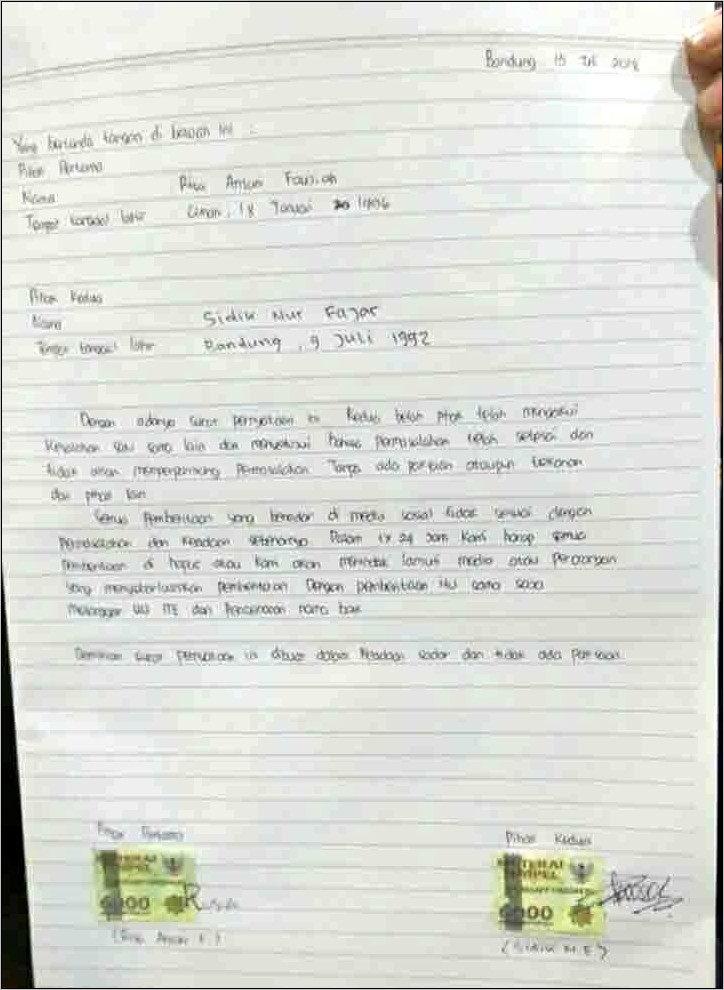 Bandung 15 Juli 2018
Yang bertanda tangan di bawah ini :
Pihak Pertama
Nama
Tempat tanggal lahir 18 Januari 1996
Pihak Kedua
Nama Sidik Nur Fajar
Tempat tanggal lahir Bandung , 9 Juli 1992
Dengan adanya surat pernyataan ini Kedua belah pihak telah mengakui
Kesalahan satu sama lain dan menyetujui bahwa permasalahan telah selesai dan
tidak akan memperpanjang Permasalahan Tanpa ada paksaan ataupun tekanan
dari pihak lain
Semua Pemberitaan yang beredar di media sosial tidak sesuai dengan
Permasalahan dan Keadaan sebenarnya Dalam 1x24 Jam Kami harap semua
Pemberitaan di hapus atau Kami akan menindak lanjuti media atau perorangan
yang menyebarluaskan pemberitaan Dengan pemberitaan itu sama saja
melanggar UU ITE dan Pencemaran nama baik
Demikian surat pernyataan ini dibuat dalam Keadaan sadar dan tidak ada paksaan
Pihak Pertama
METERAI
TEMPEL
6000
Pihak Kedua
METERAI
TEMPEL
6000
(Sidik N.F)